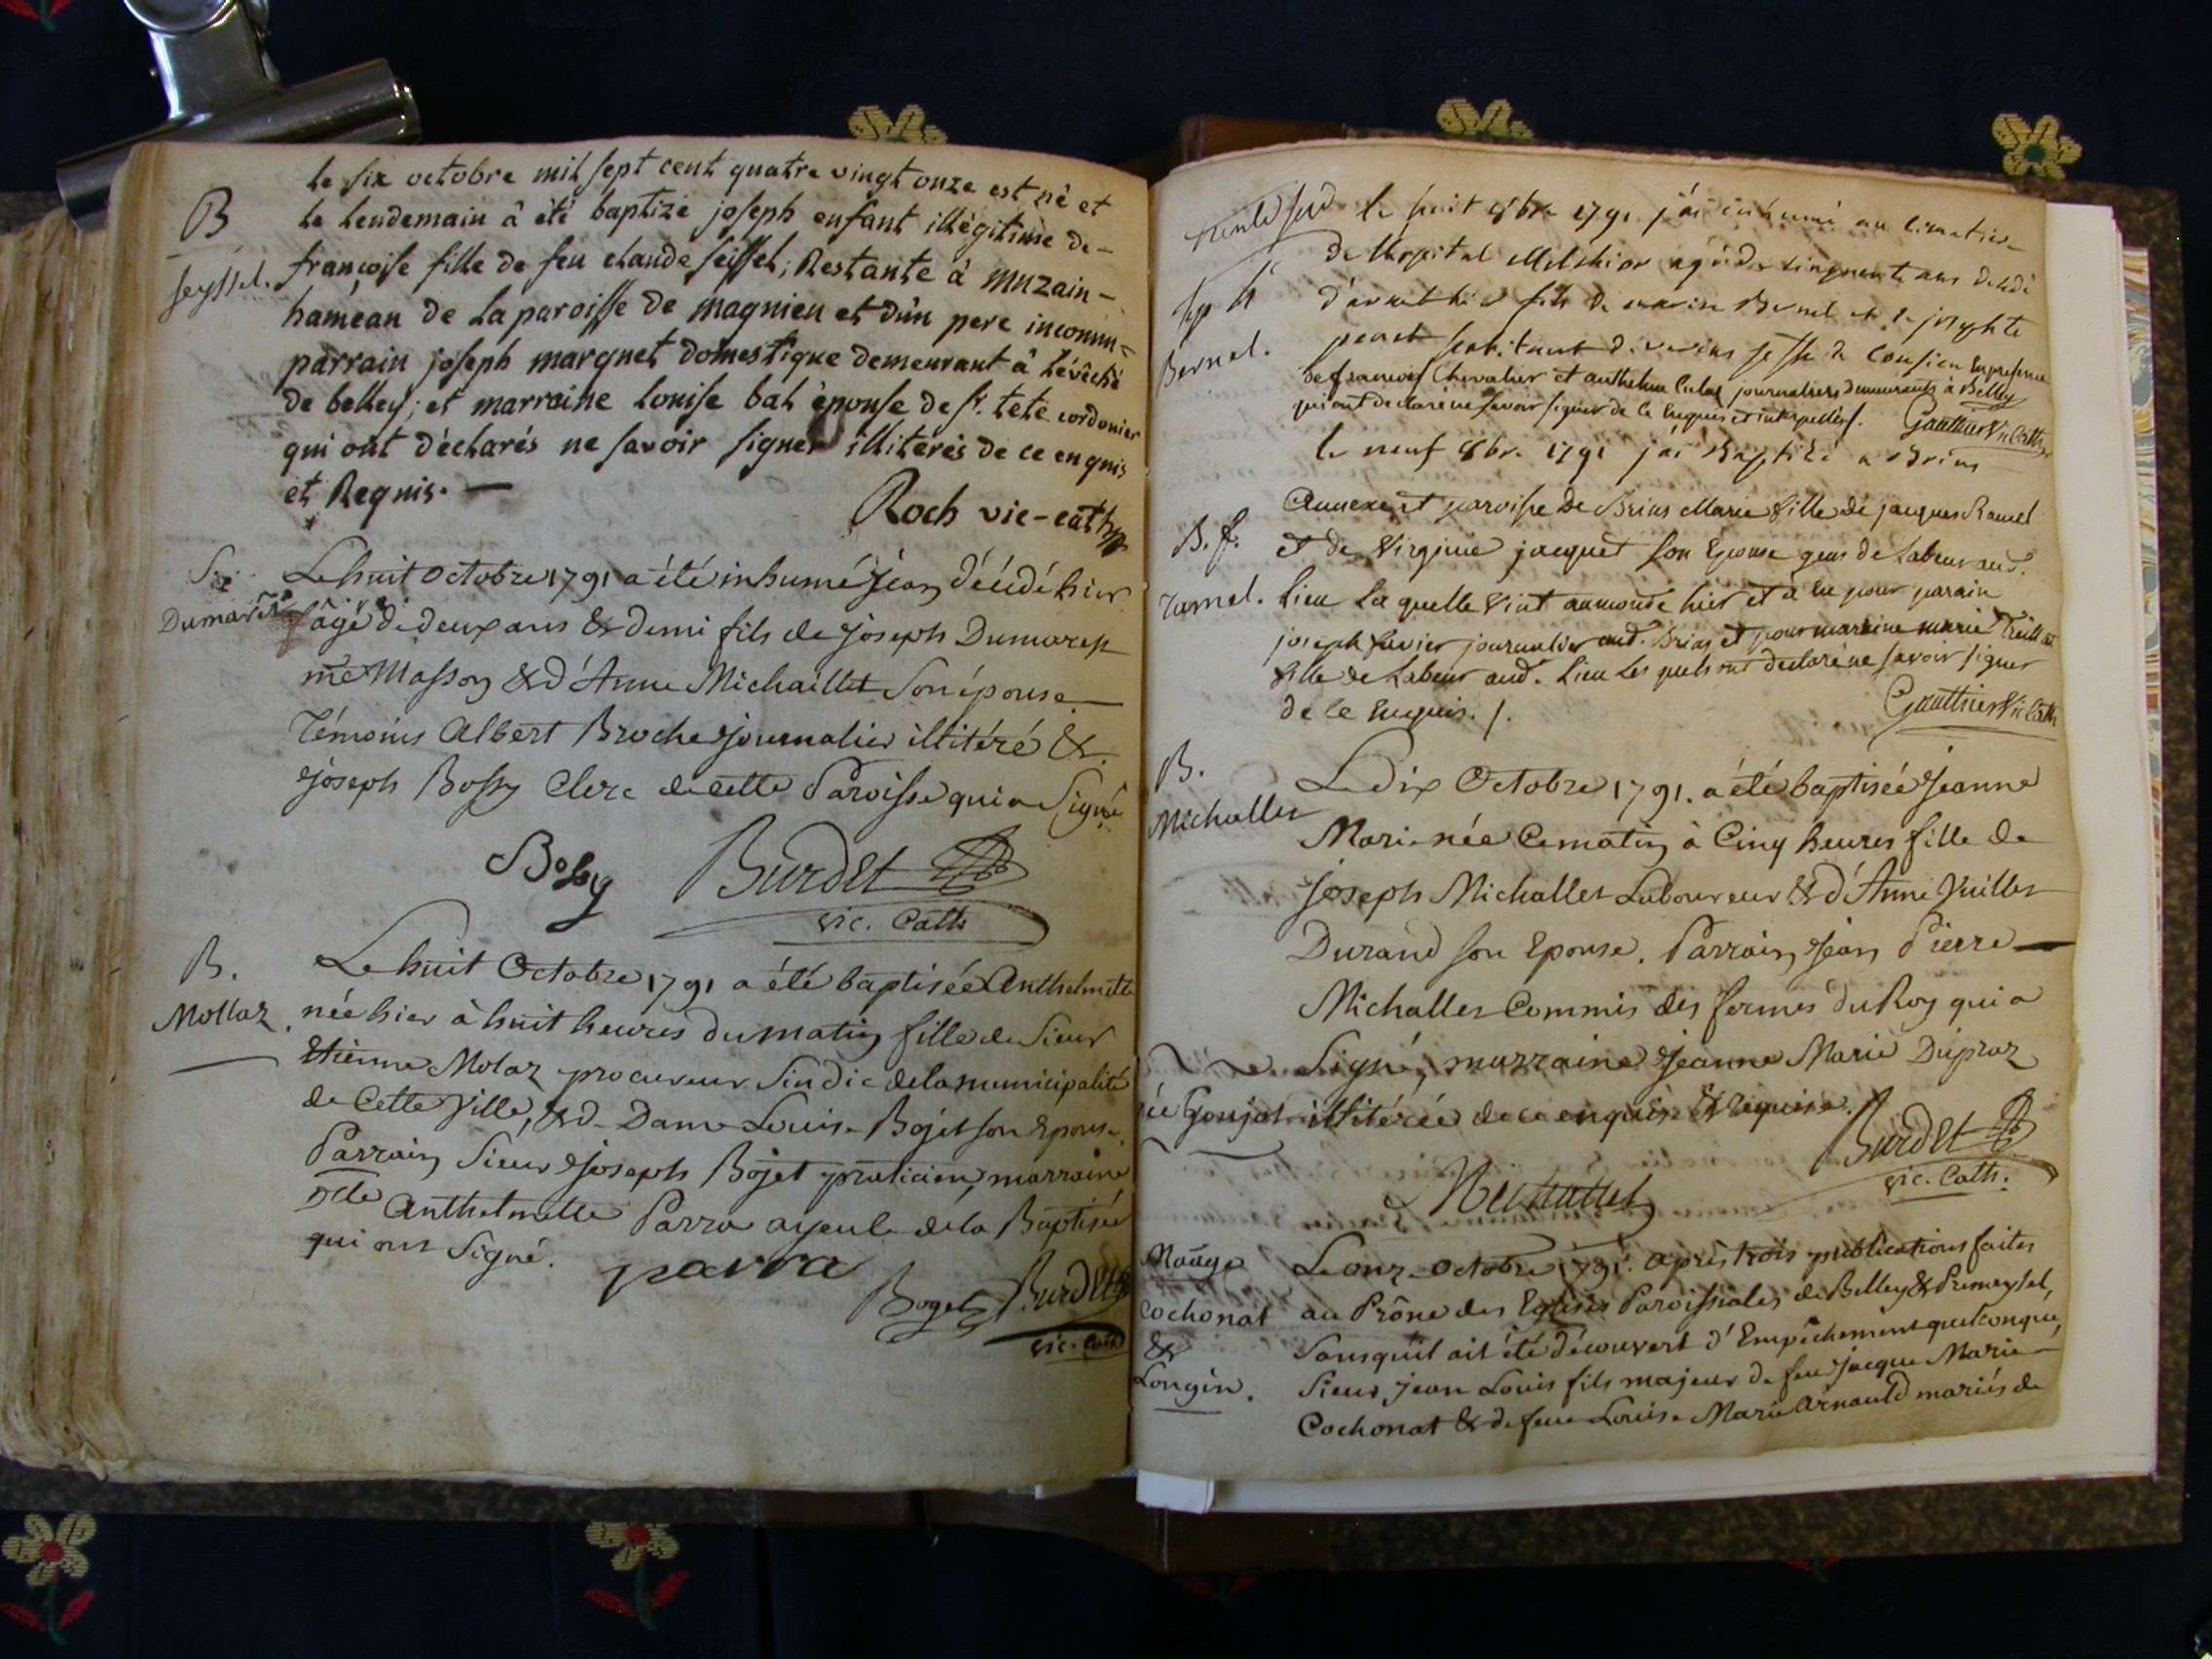 le six octobre mil sept cent quatre vingt onze est né et
B
le lendemain â été baptizé joseph enfant illégitime de-
Seyssel.
françoise fille de feu claude seissel; Restante â muzain-
haméan de la paroisse de magnieu et d'un pere inconnu-
parrain joseph marquet domestique demeurant â Lévêché
de belley; et marraine louise bal épouse de sr. tete cordonier
qui ont déclarés ne savoir signer illiterés de ce enquis
et Requis.-
Roch vic-cath
Le huit octobre 1791 a été inhumé Jean décédé hier
Dumarest
âgé de deux ans & demi fils de Joseph Dumarest
me Masson & d'Anne Michaillet son épouse.
Témoins Albert Broche journalier illitéré &
Joseph Bossy Clerc de cette Paroisse qui a Signé
Bossy Burdet
vic. Cath
B.
Le huit Octobre 1791 a été baptisée Anthelmette
Mollaz.
née hier à huit heures du matin fille de Sieur
Etienne Molaz procureur Sindic de la municipalité
de Cette Ville, & de Dame Louise Bojet son Epouse.
Parrain Sieur Joseph Bojet praticien, marraine
Dlle Anthelmette Parra ayeule de la Baptisée
qui ont Signé.
parra
Boget Burdet
vic. Cath
le huit 8bre 1791 j'ai inhumé au cimetiere
de l'hopital Melchior agé de cinquante ans decedé
Bernel.
d'avant hier fils de
de françois Chevalier et anthelme journaliers demeurants à Belley
qui ont declaré ne savoir signer de ce Enquis et interpellés/.
Gauthier Vic Cath
le neuf 8bre 1791 j'ai Baptizé a Brens
Annexe et paroisse de Brins Marie fille de jacques Ramel
B. f.
et de Virginie jacquet son Epouse gens de Labeur aud.
ramel.
lieu Laquelle Vint au monde hier et à eu pour parain
joseph journalier aud. Brins et pour maraine marie
fille de Labeur aud. lieu Les quels ont declaré ne savoir signer
de ce Enquis./.
Gauthier Vic Cath
B.
Le dix Octobre 1791. a été baptisée Jeanne
Michallet
Marie née Ce matin à Cinq heures fille de
Joseph Michallet Laboureur & d'Anne Juillet
Durand son Epouse. Parrain Jean Pierre-
Michallet Commis des fermes du Roy qui a
Signé, marraine Jeanne Marie Dupraz
née Goujot illitérée de ce enquise & requise.
Burdet
vic. Cath.
Michallet
Mariage
Le onze Octobre 1791. après trois publications faites
Cochonat
au Prône des Eglises Paroissiales de Belley & Premeysel,
&
Sans qu'il ait été découvert d'Empêchement quelconque,
Longin.
Sieur jean Louis fils majeur de feu Jacque Marie
Cochonat & de feue Louise Marie Arnauld mariés de